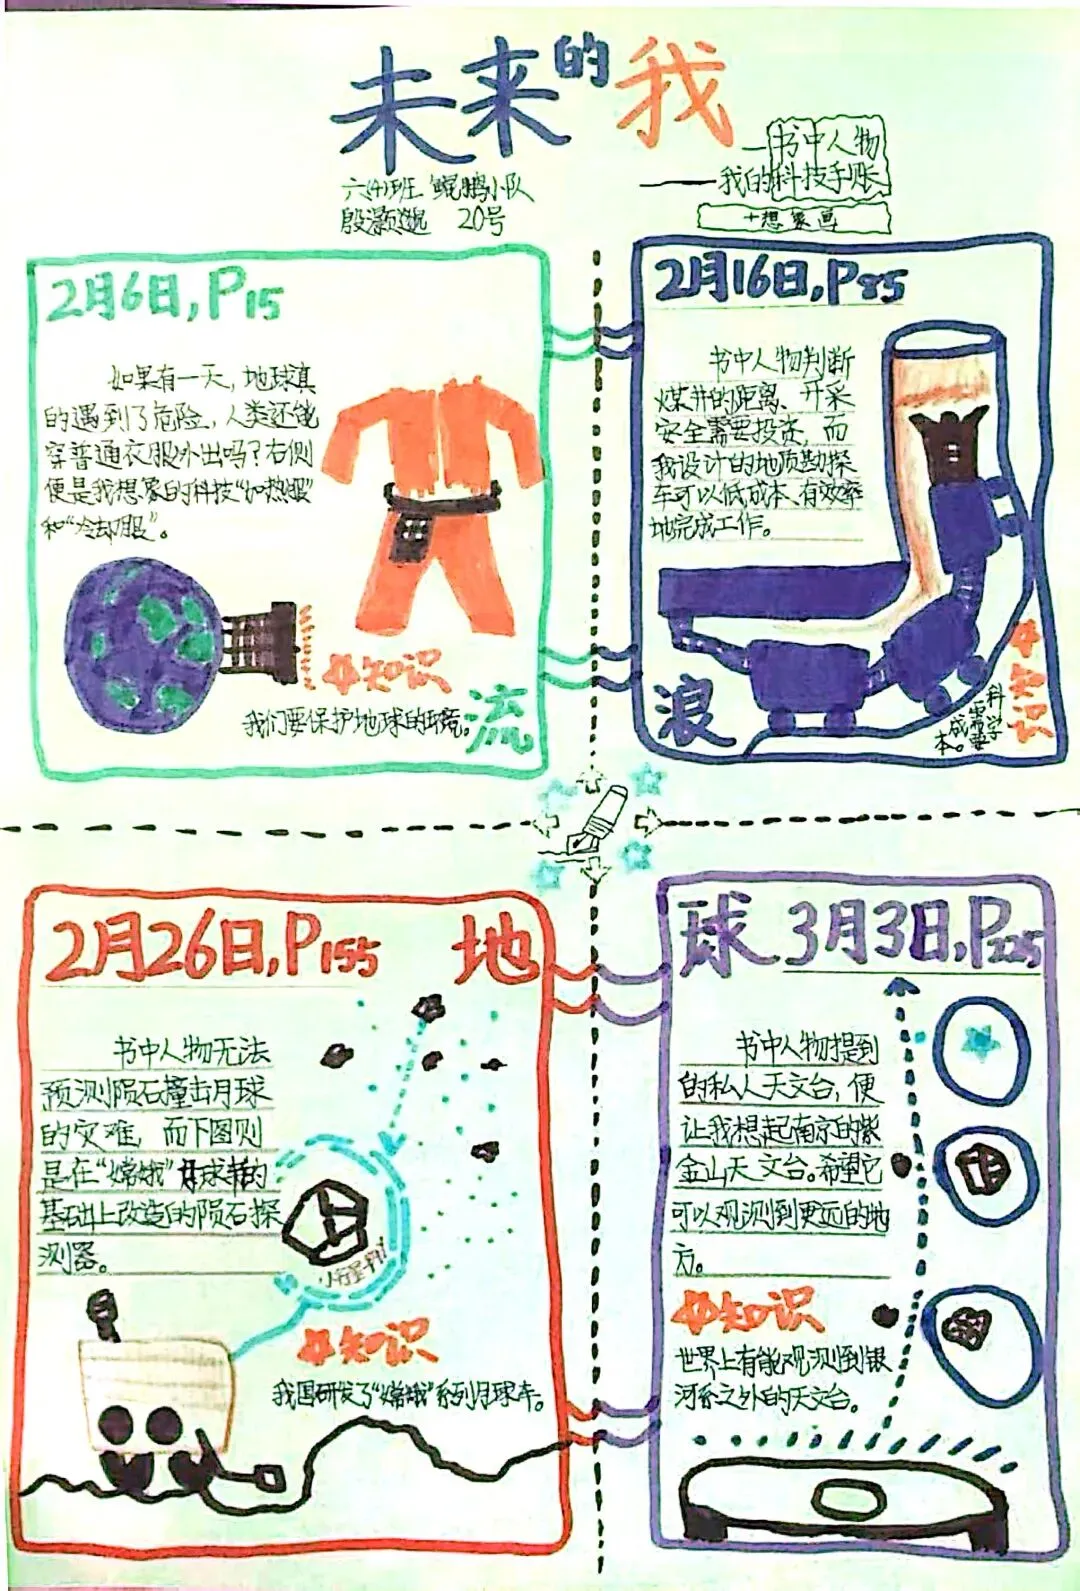 未来的我
——书中人物
——我的科技手账
+想象画
六(4)班 鲲鹏小队
殷灏 20号
2月6日,P15
如果有一天,地球真
的遇到了危险,人类还能
穿普通衣服外出吗?右侧
便是我想象的科技“加热服”
和“冷却服”。
+知识
我们要保护地球的环境。
流
2月16日,P85
书中人物判断
煤井的距离、开采
安全需要投资,而
我设计的地质勘探
车可以低成本、有效率
地完成工作。
浪
+知识
科学
需要
成本。
2月26日,P155
地
书中人物无法
预测陨石撞击月球
的灾难,而下图则
是在“嫦娥”月球车的
基础上改造的陨石探
测器。
小行星
+知识
我国研发了“嫦娥”系列月球车。
球
3月3日,P225
书中人物提到
的私人天文台,便
让我想起南京的紫
金山天文台。希望它
可以观测到更远的地
方。
+知识
世界上有能观测到银
河系之外的天文台。